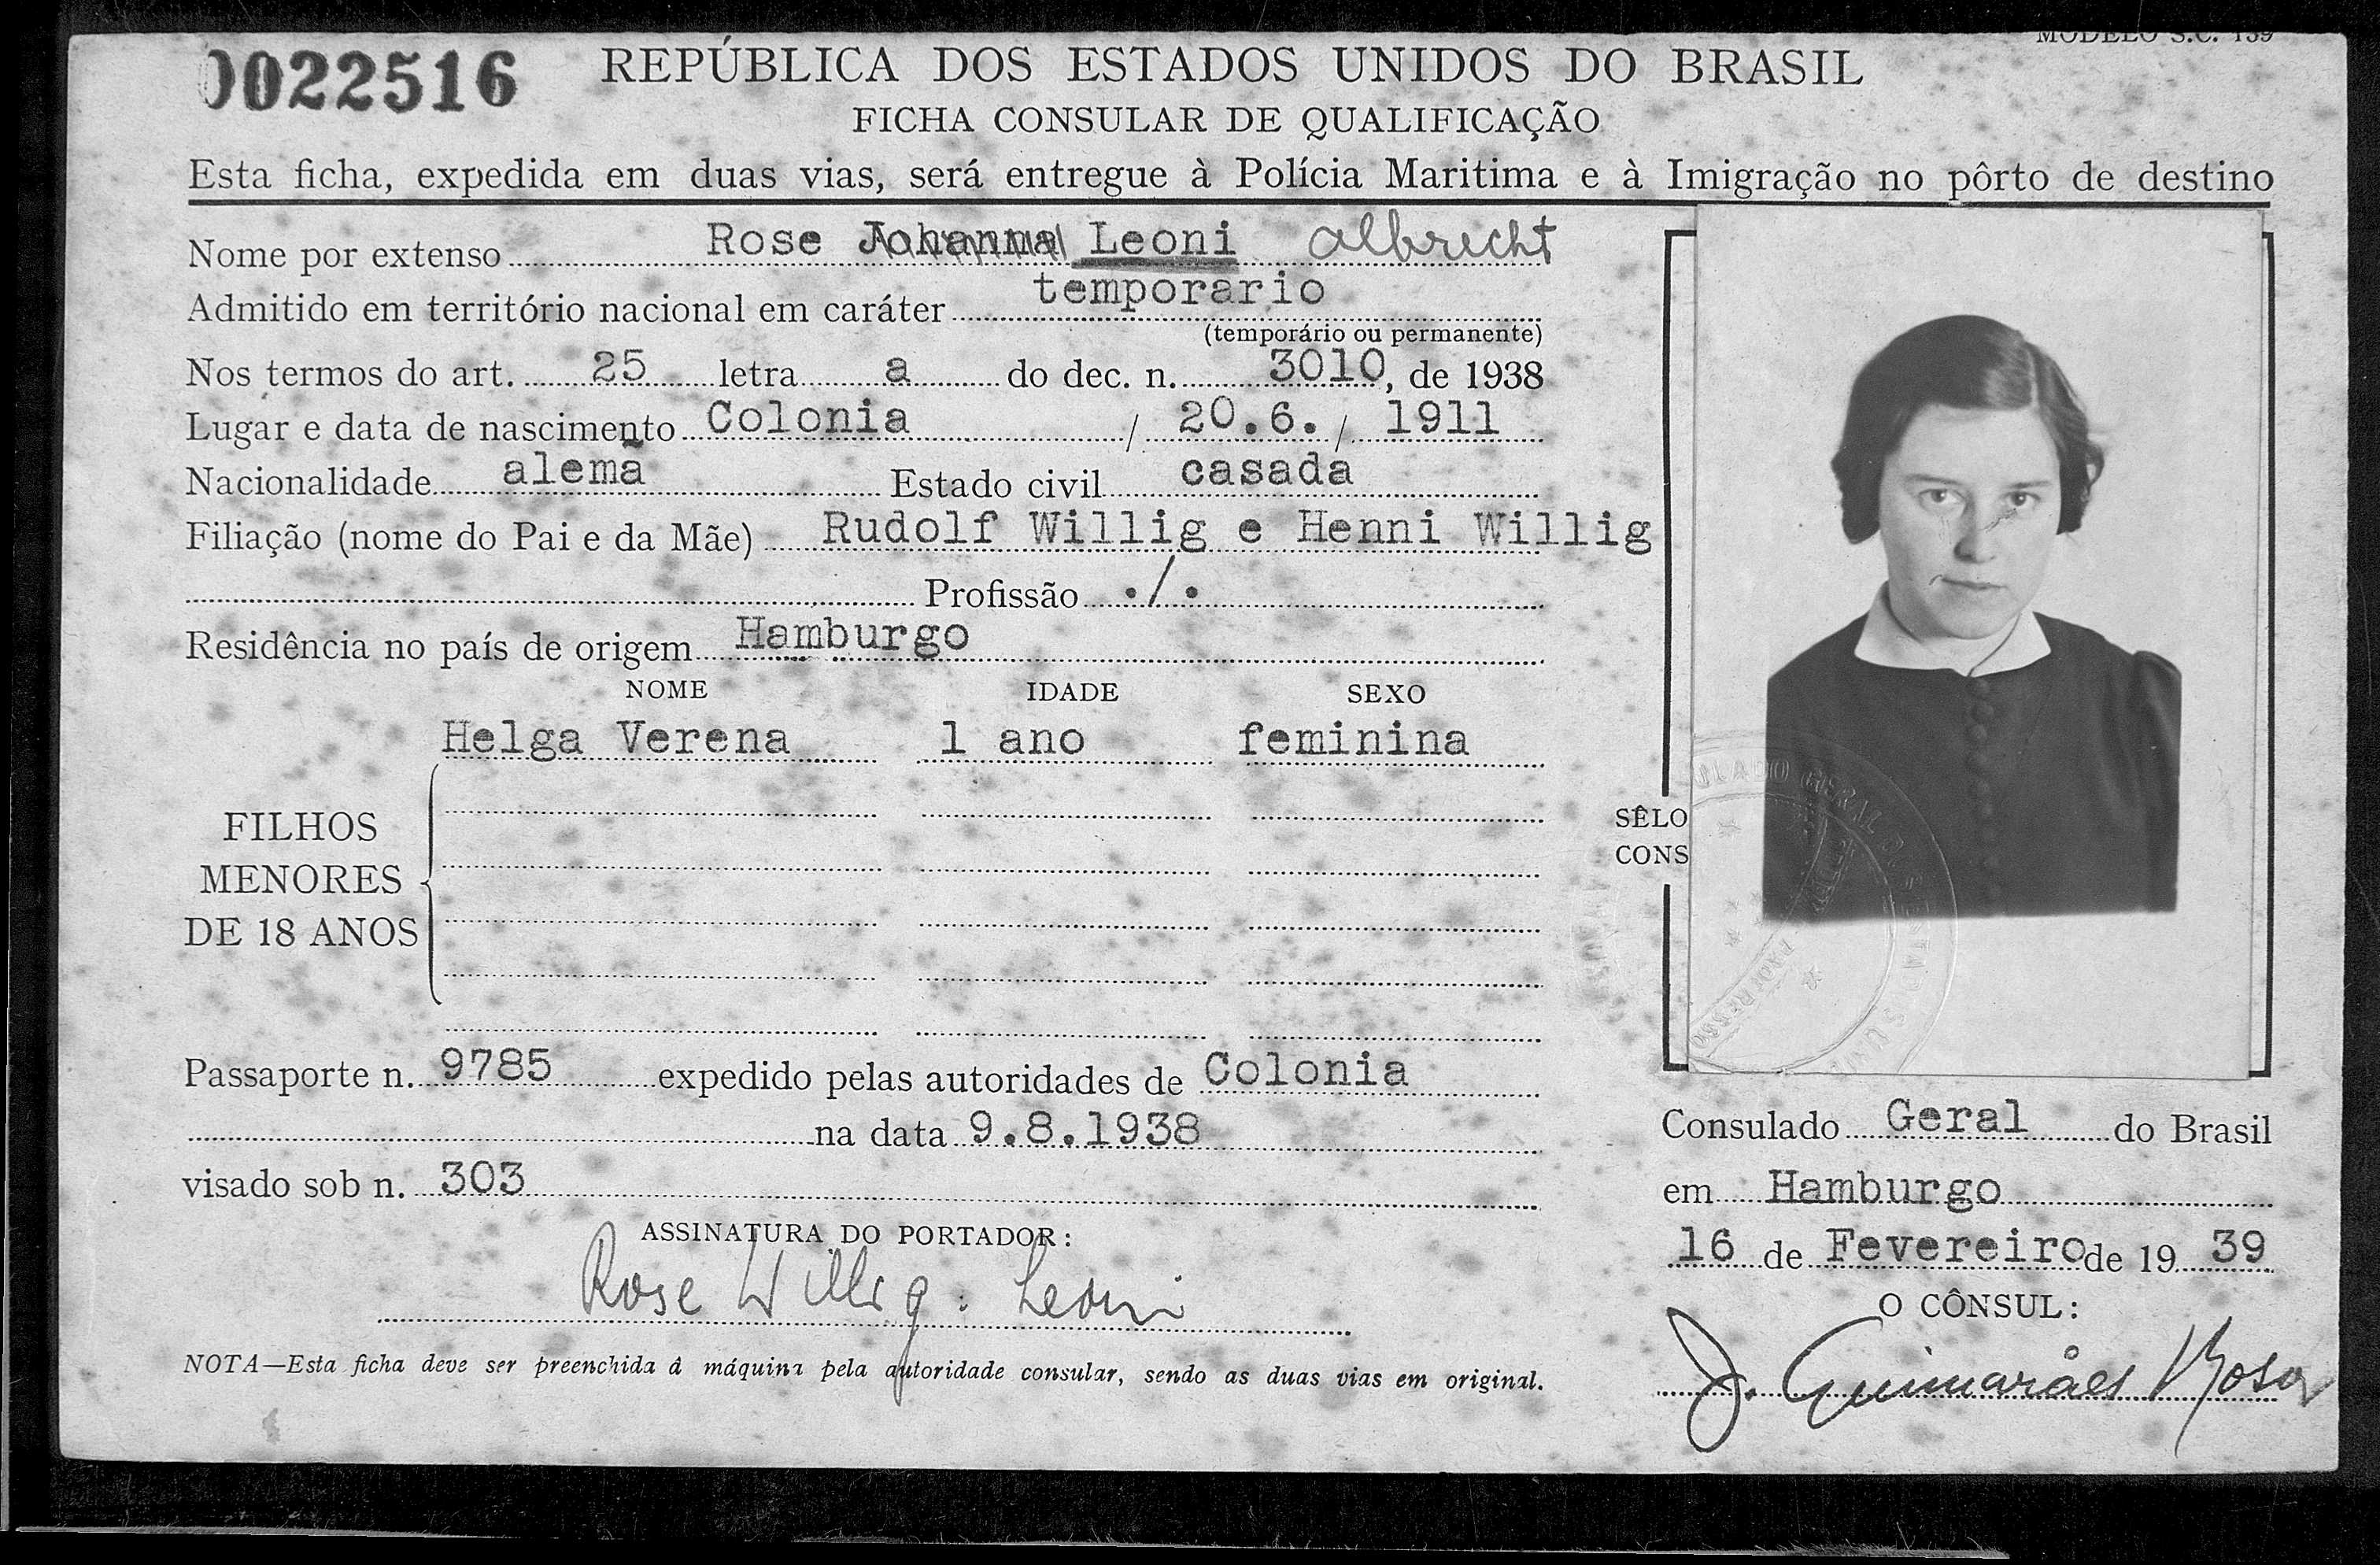 0022516
MODELO S.C. 139
REPÚBLICA DOS ESTADOS UNIDOS DO BRASIL
FICHA CONSULAR DE QUALIFICAÇÃO
Esta ficha, expedida em duas vias, será entregue à Polícia Maritima e à Imigração no pôrto de destino
Nome por extenso Rose Johanna Leoni Albrecht
Admitido em território nacional em caráter temporario
(temporário ou permanente)
Nos termos do art. 25 letra a do dec. n. 3010, de 1938
Lugar e data de nascimento Colonia / 20.6. / 1911
Nacionalidade alemã Estado civil casada
Filiação (nome do Pai e da Mãe) Rudolf Willig e Henni Willig
Profissão ./.
Residência no país de origem Hamburgo
NOME IDADE SEXO
Helga Verena 1 ano feminina
FILHOS
MENORES
DE 18 ANOS
SÊLO
CONS
Passaporte n. 9785 expedido pelas autoridades de Colonia
na data 9.8.1938
visado sob n. 303
ASSINATURA DO PORTADOR:
Rose Willig-Leoni
NOTA—Esta ficha deve ser preenchida à máquina pela autoridade consular, sendo as duas vias em original.
Consulado Geral do Brasil
em Hamburgo
16 de Fevereiro de 19 39
O CÔNSUL:
J. Guimarães Rosa